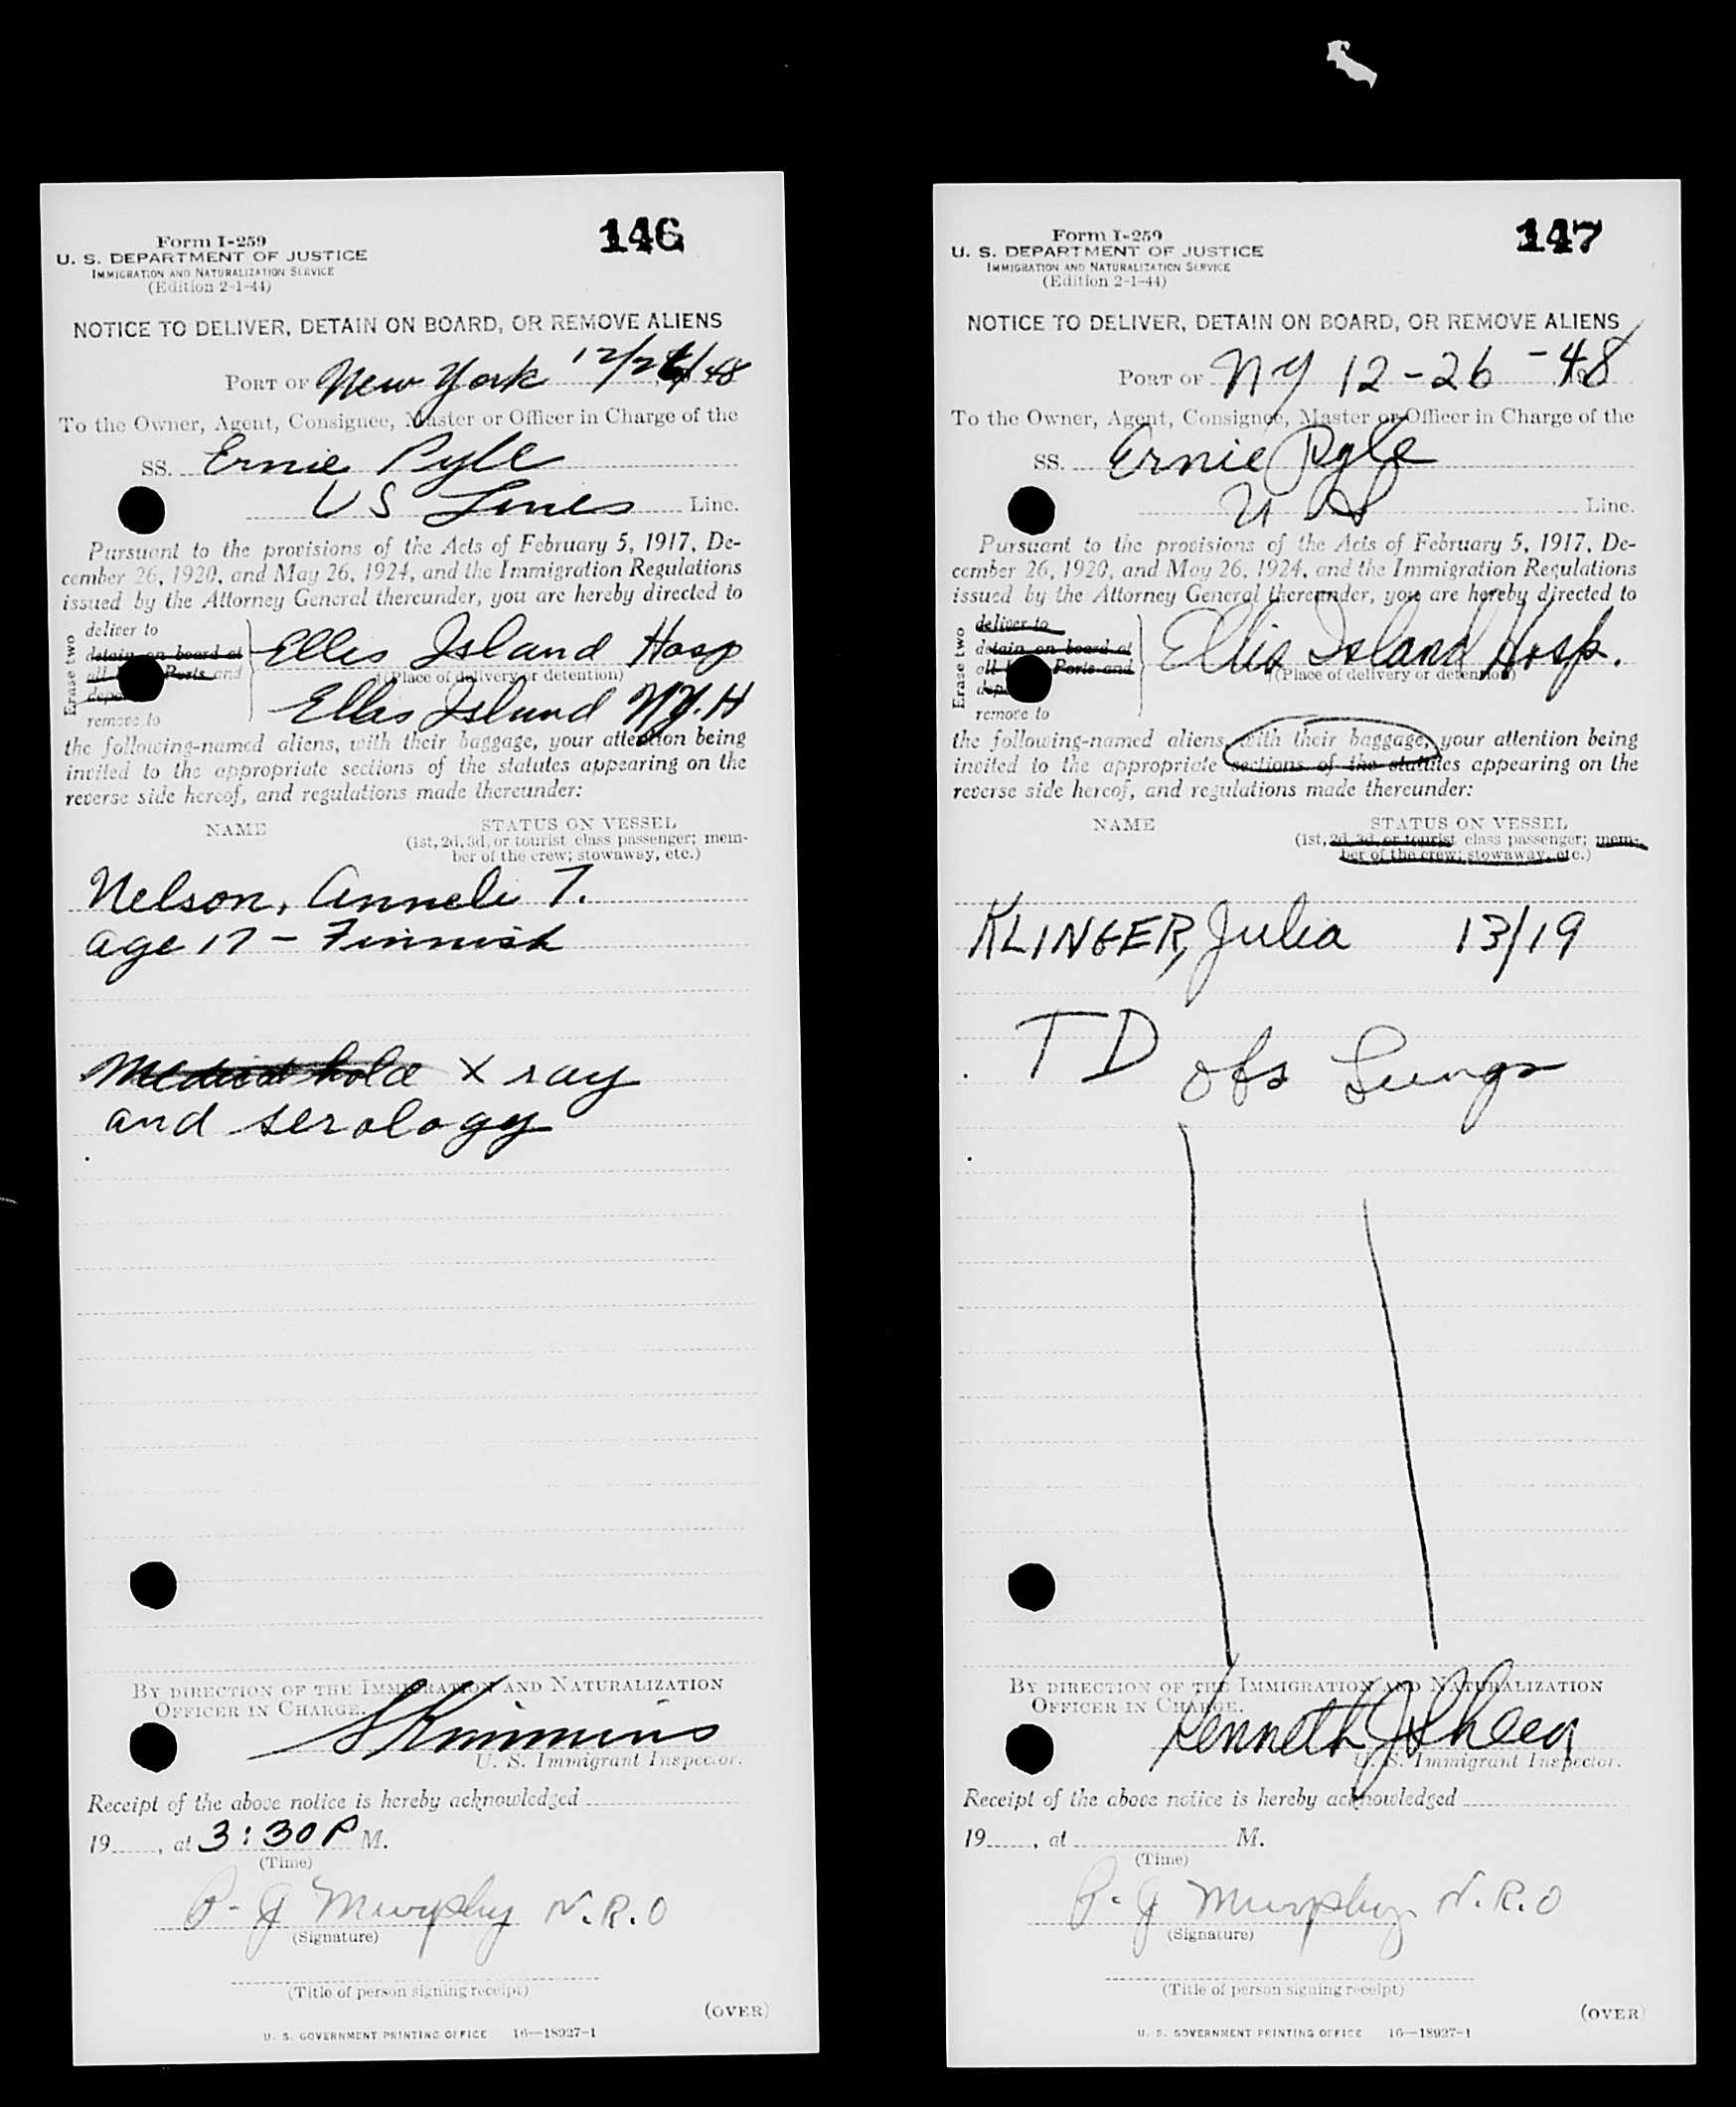 146
Form I-259
U. S. DEPARTMENT OF JUSTICE
IMMIGRATION AND NATURALIZATION SERVICE
(Edition 2-1-44)
NOTICE TO DELIVER, DETAIN ON BOARD, OR REMOVE ALIENS
PORT OF New York 12/26/48
To the Owner, Agent, Consignee, Master or Officer in Charge of the
SS. Ernie Pyle
US Lines Line.
Pursuant to the provisions of the Acts of February 5, 1917, De-
cember 26, 1920, and May 26, 1924, and the Immigration Regulations
issued by the Attorney General thereunder, you are hereby directed to
Erase two
deliver to
detain on board at
all Ports and
remove to
Ellis Island Hosp
(Place of delivery or detention)
Ellis Island NY. H
the following-named aliens, with their baggage, your attention being
invited to the appropriate sections of the statutes appearing on the
reverse side hereof, and regulations made thereunder:
NAME
STATUS ON VESSEL
(1st, 2d, 3d, or tourist class passenger; mem-
ber of the crew; stowaway, etc.)
Nelson, Anneli T.
age 17 - Finnish
Medical hold X ray
and serology
BY DIRECTION OF THE IMMIGRATION AND NATURALIZATION
OFFICER IN CHARGE.
U. S. Immigrant Inspector.
Receipt of the above notice is hereby acknowledged
19 , at 3:30 P M.
(Time)
P. J Murphy N.R.O
(Signature)
(Title of person signing receipt)
(OVER)
U. S. GOVERNMENT PRINTING OFFICE 16—18927-1
147
Form I-259
U. S. DEPARTMENT OF JUSTICE
IMMIGRATION AND NATURALIZATION SERVICE
(Edition 2-1-44)
NOTICE TO DELIVER, DETAIN ON BOARD, OR REMOVE ALIENS
PORT OF NY 12-26-48
To the Owner, Agent, Consignee, Master or Officer in Charge of the
SS. Ernie Pyle
U S Line.
Pursuant to the provisions of the Acts of February 5, 1917, De-
cember 26, 1920, and May 26, 1924, and the Immigration Regulations
issued by the Attorney General thereunder, you are hereby directed to
Erase two
deliver to
detain on board at
all Ports and
remove to
Ellis Island Hosp.
(Place of delivery or detention)
the following-named aliens, with their baggage, your attention being
invited to the appropriate sections of the statutes appearing on the
reverse side hereof, and regulations made thereunder:
NAME
STATUS ON VESSEL
(1st, 2d, 3d, or tourist class passenger; mem-
ber of the crew; stowaway, etc.)
KLINGER, Julia 13/19
TD obs Lungs
BY DIRECTION OF THE IMMIGRATION AND NATURALIZATION
OFFICER IN CHARGE.
Kenneth J Sheeq
U. S. Immigrant Inspector.
Receipt of the above notice is hereby acknowledged
19 , at M.
(Time)
P. J Murphy N.R.O
(Signature)
(Title of person signing receipt)
(OVER)
U. S. GOVERNMENT PRINTING OFFICE 16—18927-1